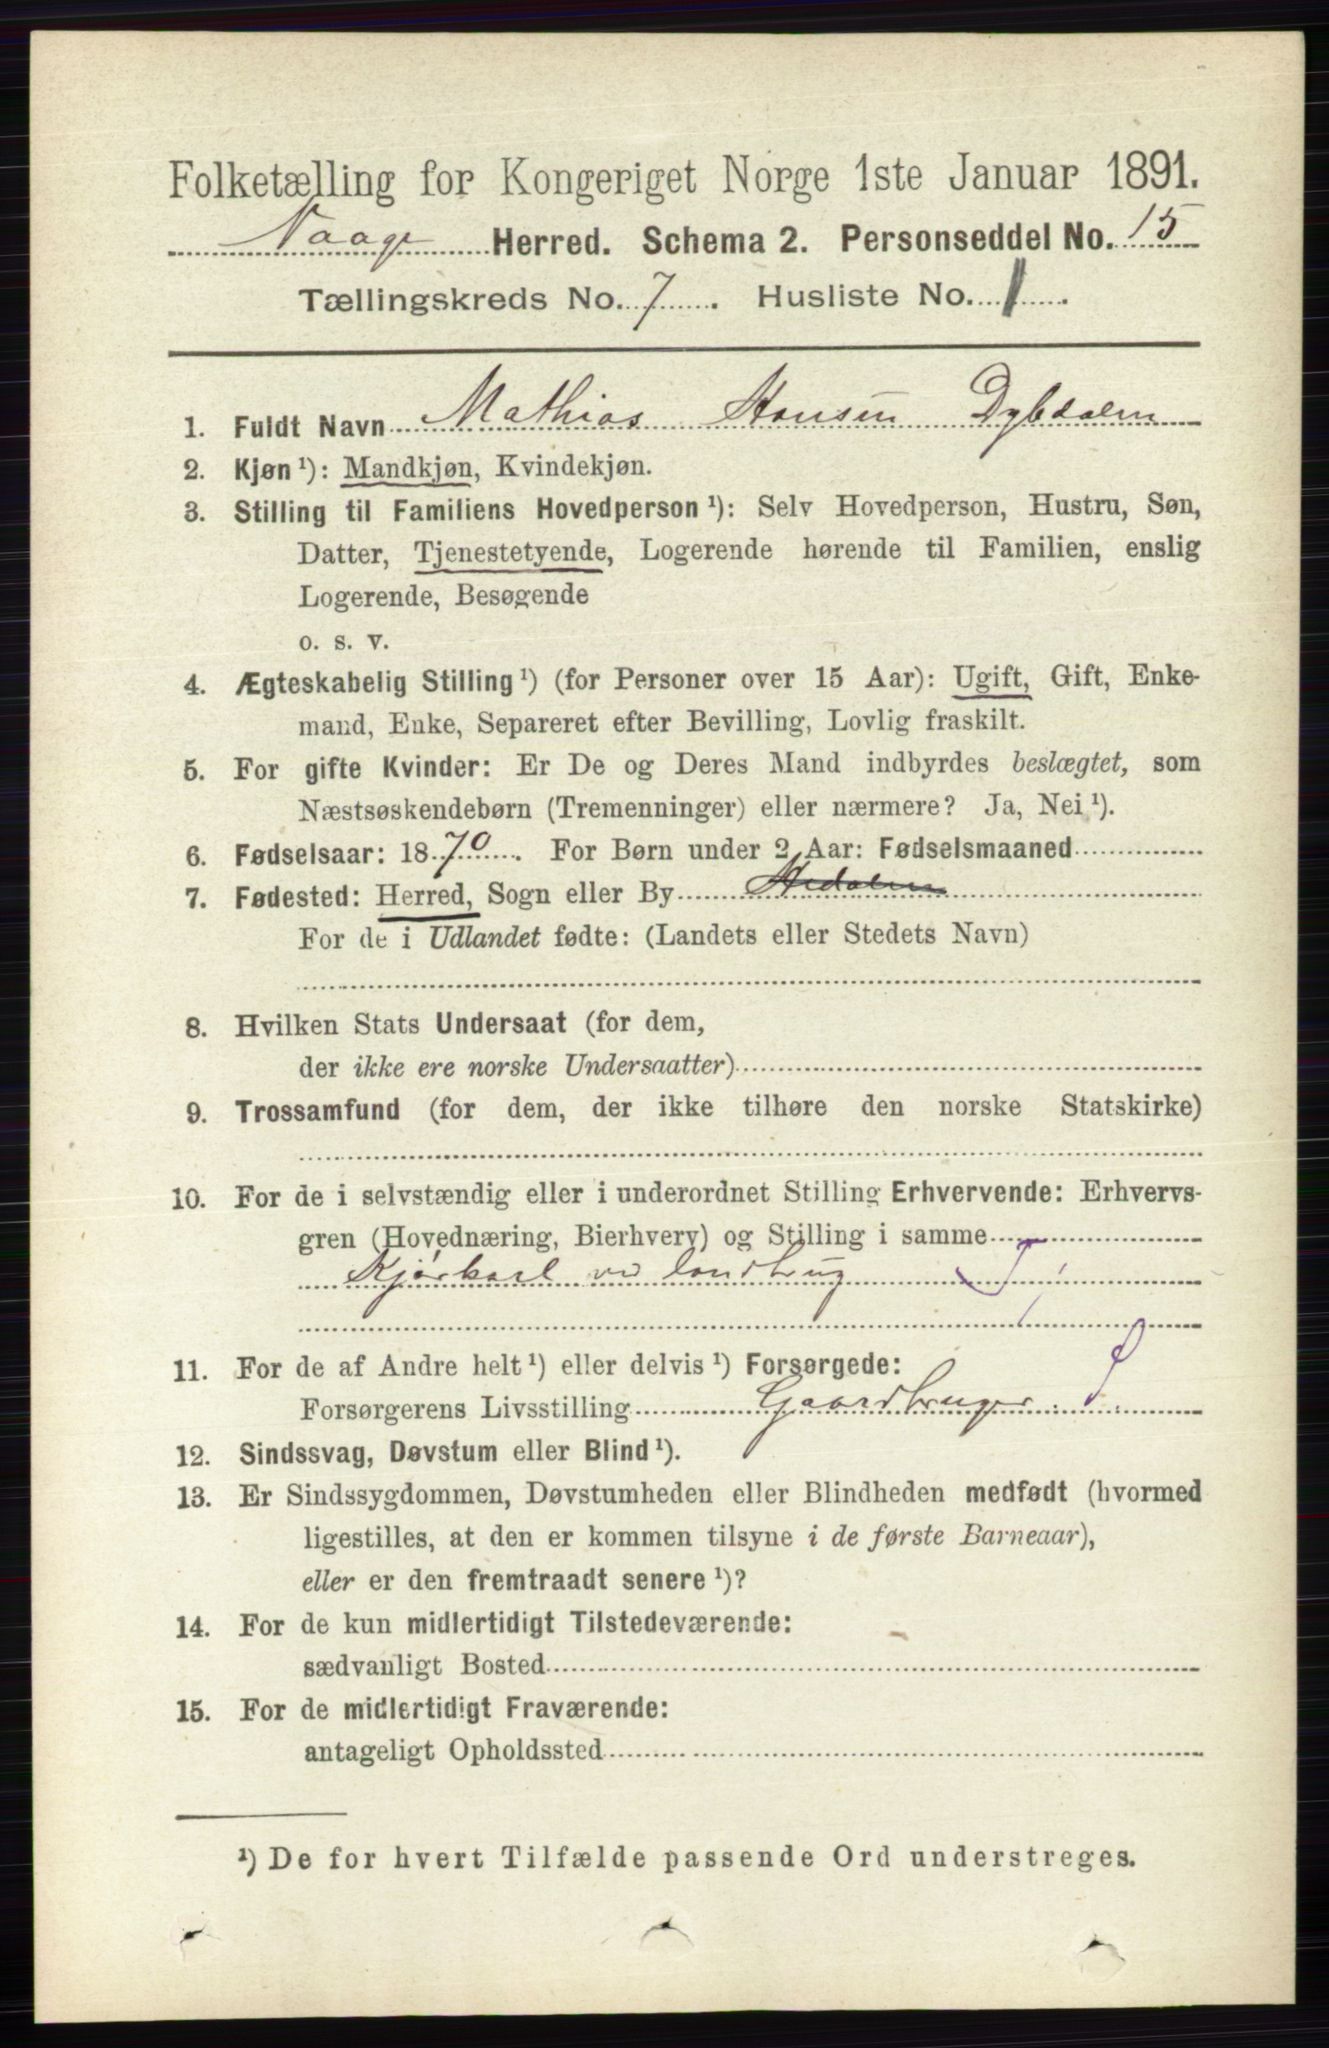 Folketælling for Kongeriget Norge 1ste Januar 1891.
Vaage Herred. Schema 2. Personseddel No. 15
Tællingskreds No. 7. Husliste No. 1.
1. Fuldt Navn Mathias Hansen Dybdalen
2. Kjøn ¹): Mandkjøn, Kvindekjøn.
3. Stilling til Familiens Hovedperson ¹): Selv Hovedperson, Hustru, Søn,
Datter, Tjenestetyende, Logerende hørende til Familien, enslig
Logerende, Besøgende
o. s. v.
4. Ægteskabelig Stilling ¹) (for Personer over 15 Aar): Ugift, Gift, Enke-
mand, Enke, Separeret efter Bevilling, Lovlig fraskilt.
5. For gifte Kvinder: Er De og Deres Mand indbyrdes beslægtet, som
Næstsøskendebørn (Tremenninger) eller nærmere? Ja, Nei ¹).
6. Fødselsaar: 1870. For Børn under 2 Aar: Fødselsmaaned
7. Fødested: Herred, Sogn eller By Hedalen
For de i Udlandet fødte: (Landets eller Stedets Navn)
8. Hvilken Stats Undersaat (for dem,
der ikke ere norske Undersaatter)
9. Trossamfund (for dem, der ikke tilhøre den norske Statskirke)
10. For de i selvstændig eller i underordnet Stilling Erhvervende: Erhvervs-
gren (Hovednæring, Bierhverv) og Stilling i samme
Kjørkarl ved landbrug
11. For de af Andre helt ¹) eller delvis ¹) Forsørgede:
Forsørgerens Livsstilling Gaardbruger
12. Sindssvag, Døvstum eller Blind ¹).
13. Er Sindssygdommen, Døvstumheden eller Blindheden medfødt (hvormed
ligestilles, at den er kommen tilsyne i de første Barneaar),
eller er den fremtraadt senere ¹)?
14. For de kun midlertidigt Tilstedeværende:
sædvanligt Bosted
15. For de midlertidigt Fraværende:
antageligt Opholdssted
¹) De for hvert Tilfælde passende Ord understreges.